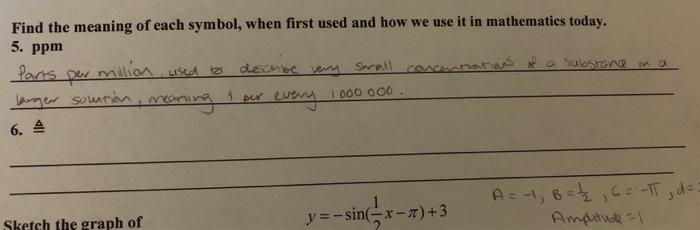 Find the meaning of each symbol, when first used and how we use it in mathematics today.
5. ppm
Parts per million, used to describe very small concentrations of a substance in a
larger solution, meaning 1 per every 1 000 000.
6. ≜
Sketch the graph of y = -sin(1/2 x - π) + 3
A = -1, B = 1/2, C = -π, d =
Amplitude = 1